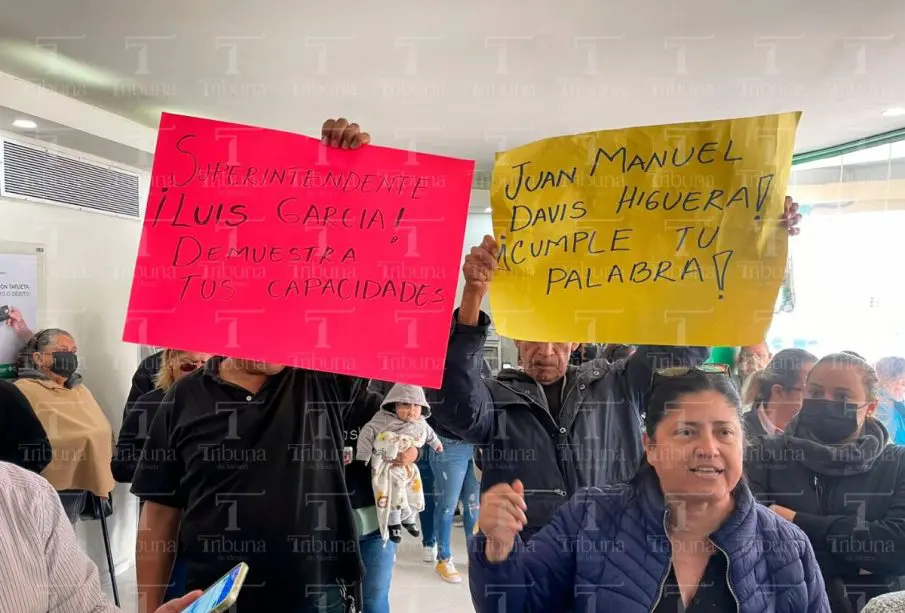 SUPERINTENDENTE
¡LUIS GARCIA!
DEMUESTRA
TUS CAPACIDADES
JUAN MANUEL
DAVIS HIGUERA!
¡CUMPLE TU
PALABRA!
Tribuna